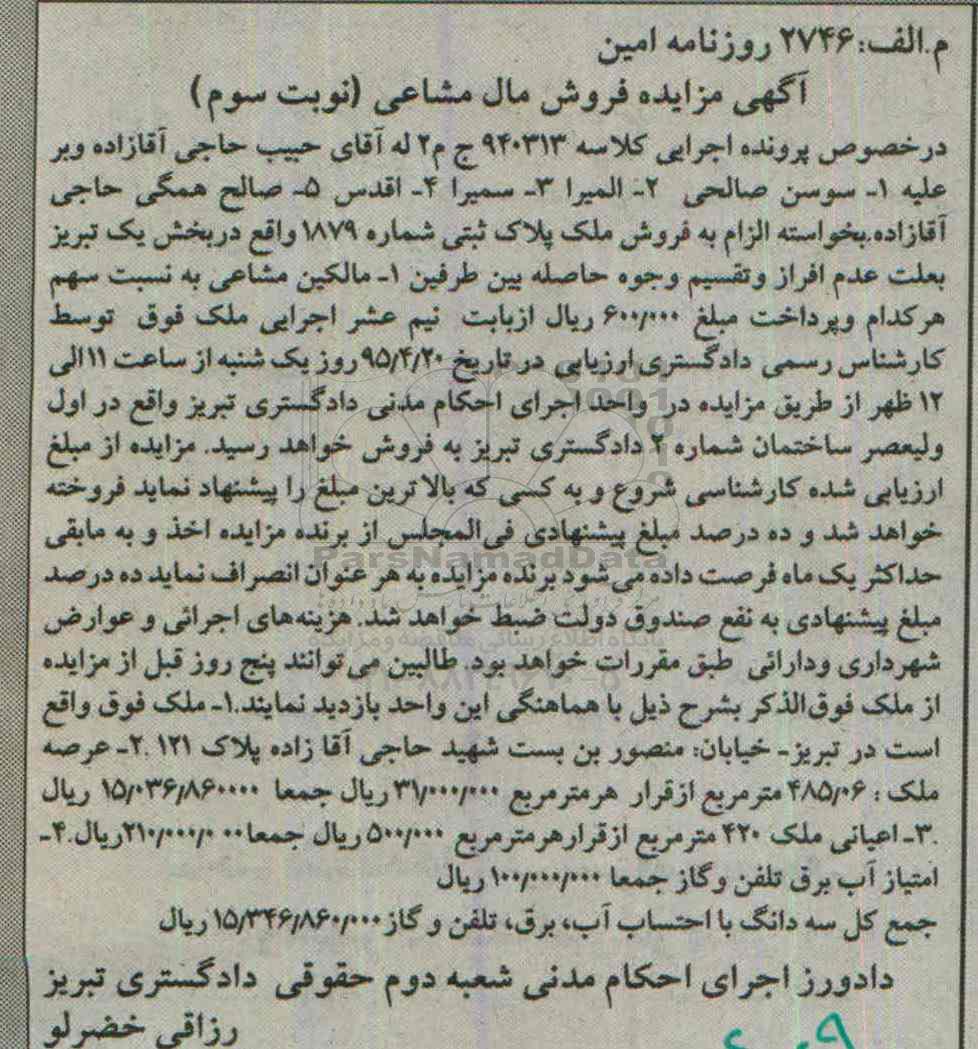 م.الف: ۲۷۴۶ روزنامه امین
آگهی مزایده فروش مال مشاعی (نوبت سوم)
درخصوص پرونده اجرایی کلاسه ۹۴۰۳۱۳ ج م۲ له آقای حبیب حاجی آقازاده وبر
علیه ۱- سوسن صالحی ۲- المیرا ۳- سمیرا ۴- اقدس ۵- صالح همگی حاجی
آقازاده.بخواسته الزام به فروش ملک پلاک ثبتی شماره ۱۸۷۹ واقع دربخش یک تبریز
بعلت عدم افراز وتقسیم وجوه حاصله بین طرفین ۱- مالکین مشاعی به نسبت سهم
هرکدام وپرداخت مبلغ ۶۰۰/۰۰۰ ریال ازبابت نیم عشر اجرایی ملک فوق توسط
کارشناس رسمی دادگستری ارزیابی در تاریخ ۹۵/۴/۲۰ روز یک شنبه از ساعت ۱۱الی
۱۲ ظهر از طریق مزایده در واحد اجرای احکام مدنی دادگستری تبریز واقع در اول
ولیعصر ساختمان شماره ۲ دادگستری تبریز به فروش خواهد رسید. مزایده از مبلغ
ارزیابی شده کارشناسی شروع و به کسی که بالاترین مبلغ را پیشنهاد نماید فروخته
خواهد شد و ده درصد مبلغ پیشنهادی فی‌المجلس از برنده مزایده اخذ و به مابقی
ParsNamadData
حداکثر یک ماه فرصت داده می‌شود برنده مزایده به هر عنوان انصراف نماید ده درصد
مبلغ پیشنهادی به نفع صندوق دولت ضبط خواهد شد. هزینه‌های اجرائی و عوارض
پایگاه اطلاع رسانی مناقصه و مزایده
شهرداری ودارائی طبق مقررات خواهد بود. طالبین می‌توانند پنج روز قبل از مزایده
از ملک فوق‌الذکر بشرح ذیل با هماهنگی این واحد بازدید نمایند.۱- ملک فوق واقع
است در تبریز- خیابان: منصور بن بست شهید حاجی آقا زاده پلاک ۱۲۱ .۲- عرصه
ملک : ۴۸۵/۰۶ مترمربع ازقرار هرمترمربع ۳۱/۰۰۰/۰۰۰ ریال جمعا ۱۵/۰۳۶/۸۶۰۰۰۰ ریال
.۳- اعیانی ملک ۴۲۰ مترمربع ازقرارهرمترمربع ۵۰۰/۰۰۰ ریال جمعا ۲۱۰/۰۰۰/۰۰۰ریال.۴-
امتیاز آب برق تلفن وگاز جمعا ۱۰۰/۰۰۰/۰۰۰ ریال
جمع کل سه دانگ با احتساب آب، برق، تلفن و گاز ۱۵/۳۴۶/۸۶۰/۰۰۰ ریال
دادورز اجرای احکام مدنی شعبه دوم حقوقی دادگستری تبریز
رزاقی خضرلو